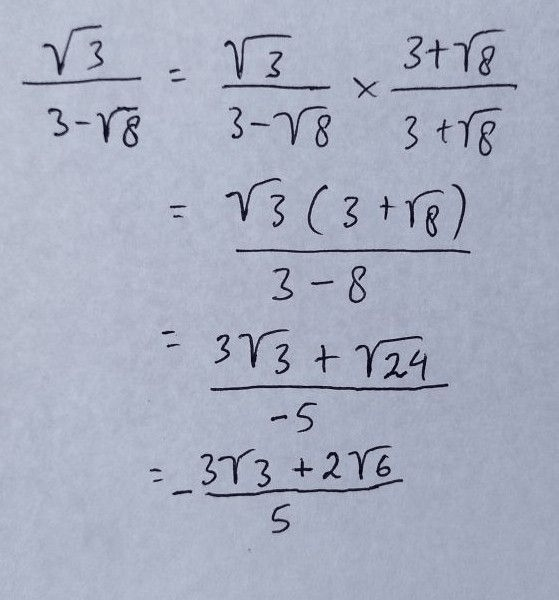 √3/(3-√8) = √3/(3-√8) × (3+√8)/(3+√8)
= √3(3+√8)/(3-8)
= (3√3+√24)/-5
= -(3√3+2√6)/5